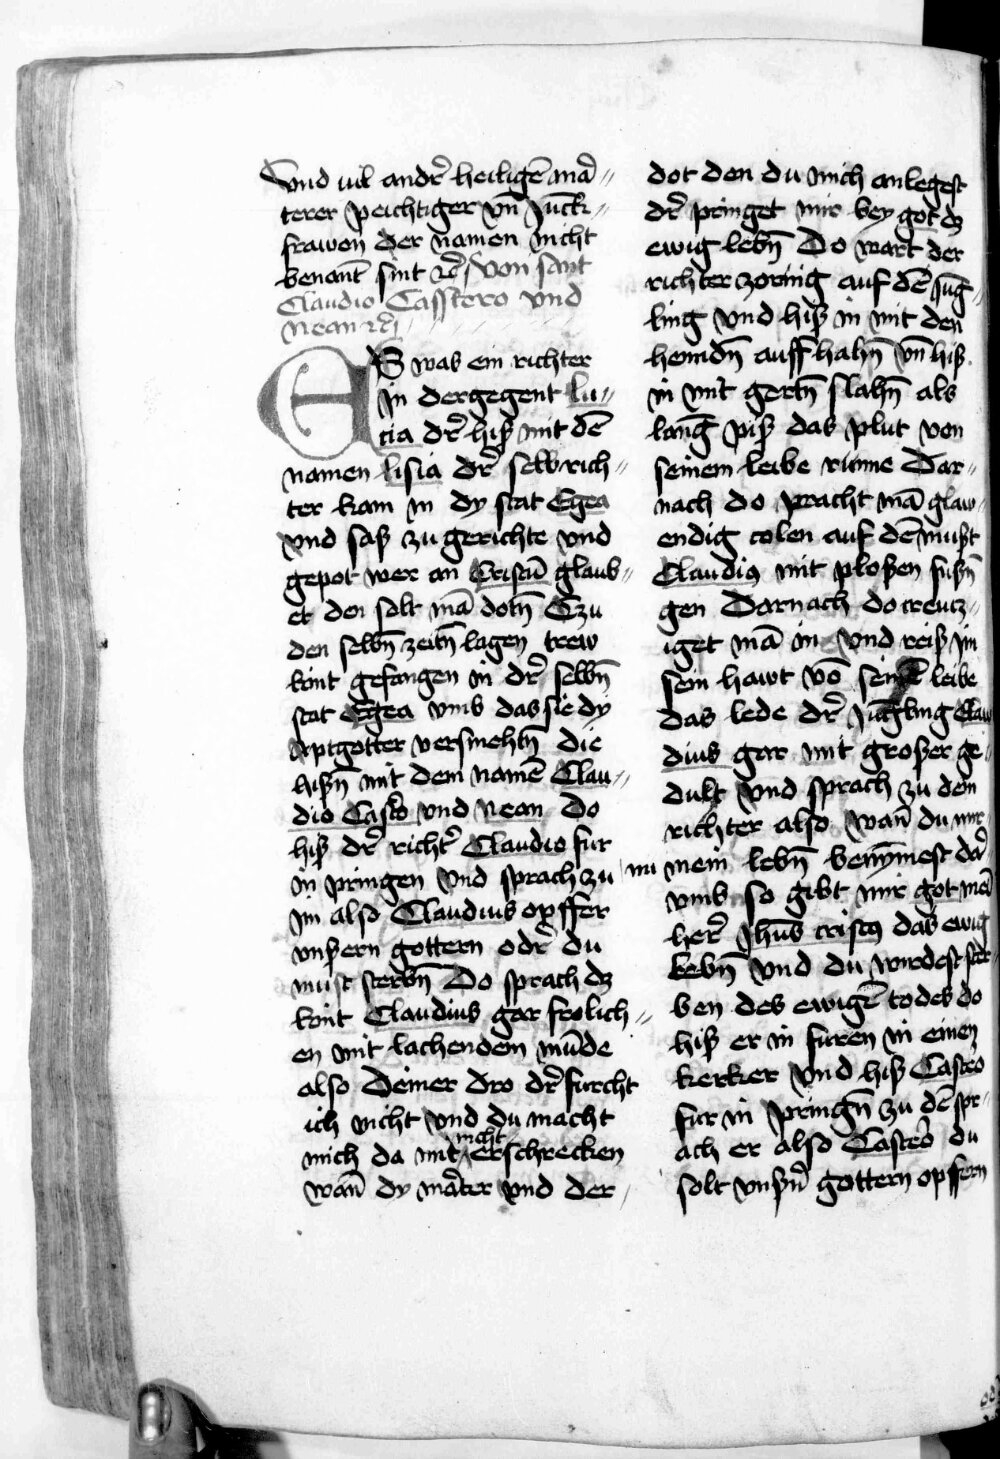 Vnd uil andr̉ heiligē mar̉⸗
terer peichtiger vn̄ Juck⸗
frawen der namen nicht
benant sint ꝛc̉ Von sant
Claudio Casstero vnd
Nean ꝛc̉
ES was ein richter
In der gegent lu⸗
cia dr̉ hiß mit dē
namen lisia dr̉ selb rich⸗
ter kam in dy stat Egea
vnd saß zu gerichte vnd
gepot wer an Cristū glaub⸗
et den solt mā dotn̄ Czu
den selbn̄ zeitn̄ lagen trew
kint gefangen in dr̉ selbn̄
stat Egea vmb das sie dy
Aptgotter versmehtn̄ die
hißn̄ mit dem namē Clau⸗
dio Castro vnd Nean Do
hiß dr̉ richtr̉ Claudio fur
in pringen vnd sprach zu
im also Claudius opffer
vnßern gottern odr̉ du
must sterbn̄ Do sprach dz
kint Claudius gar frolich⸗
en mit lachendem mūde
also Deiner dro dr̉ furcht
ich nicht vnd du macht
mich da mit nicht erschrecken
wan̄ dy mar̉ter vnd der
dot den du mich anlegest
dr̉ pringet mir bey got dz
ewig lebn̄ Do wart der
richter zornig auf dē Jūg⸗
ling vnd hiß in mit den
hendn̄ auff hahn̄ vn̄ hiß
in mit gertn̄ slahn̄ als
lang piß das plut von
seinem leibe rinne Dar⸗
nach do pracht mā gluw⸗
endig colen auf dē mußt
Claudius mit ploßen fußn̄
gen Darnach do creutz⸗
iget mā in vnd reiß im
sein hawt vō seinē leibe
das lede dr̉ Jūgling Clau
dius gar mit großer ge⸗
dult vnd sprach zu dem
richter also wan̄ du mir
nu mein lebn̄ benȳmest dar̉
vmb so gibt mir got mei
her̉ Jhūs cristus das ewig
lebn̄ vnd du wirdest ster⸗
ben des ewigē todes do
hiß er in furen in einen
kerker vnd hiß Castro
fur in pringn̄ zu dē spr⸗
ach er also Castro du
solt vnßn̉ gottern opffern